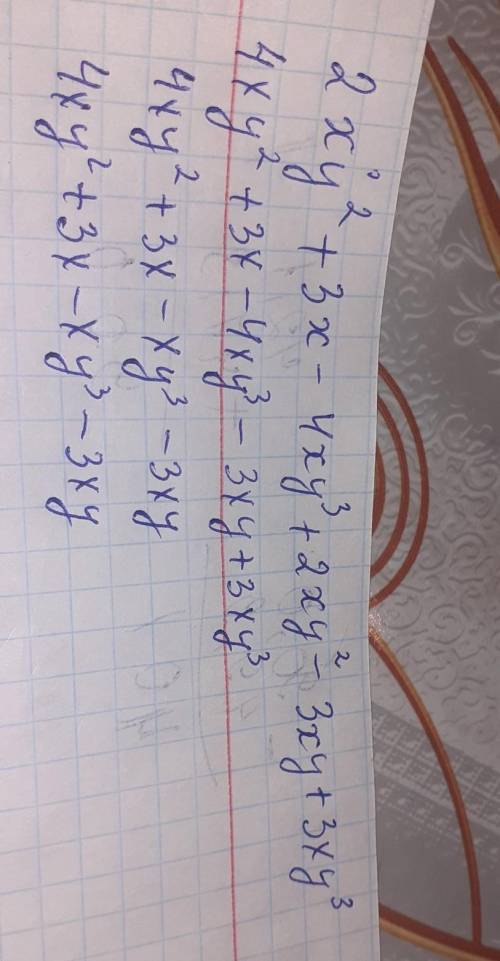 2xy² + 3x - 4xy³ + 2xy² - 3xy + 3xy³
4xy² + 3x - 4xy³ - 3xy + 3xy³
4xy² + 3x - xy³ - 3xy
4xy² + 3x - xy³ - 3xy